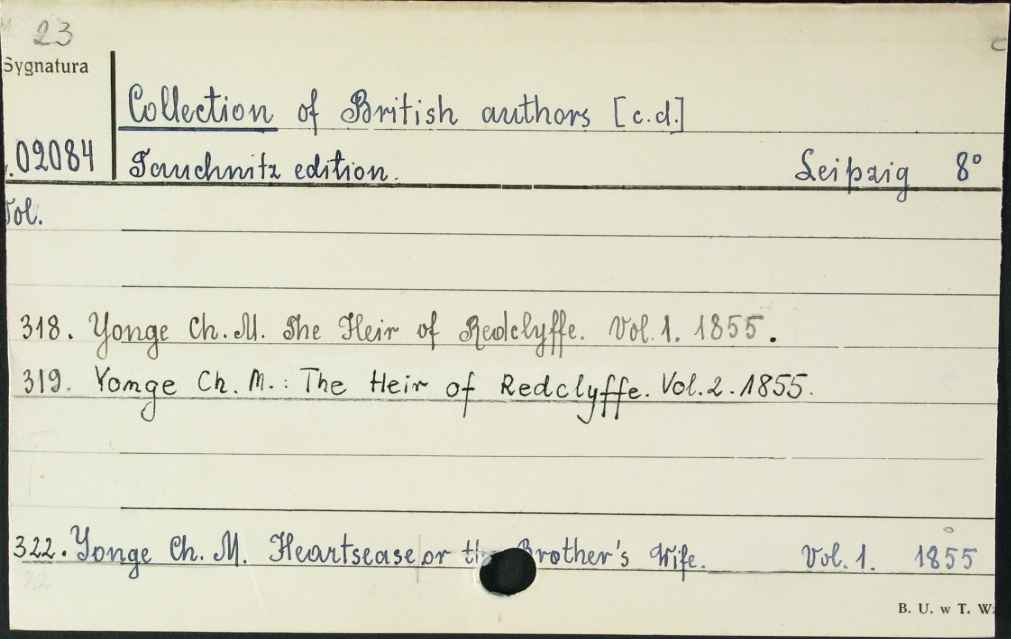 23
Sygnatura
Collection of British authors [c.d.]
.02084 Tauchnitz edition. Leipzig 8°
Vol.
318. Yonge Ch. M. The Heir of Redclyffe. Vol. 1. 1855.
319. Yonge Ch. M.: The Heir of Redclyffe. Vol. 2. 1855.
322. Yonge Ch. M. Heartsease or the Brother's Wife. Vol. 1. 1855
B. U. w T. W.